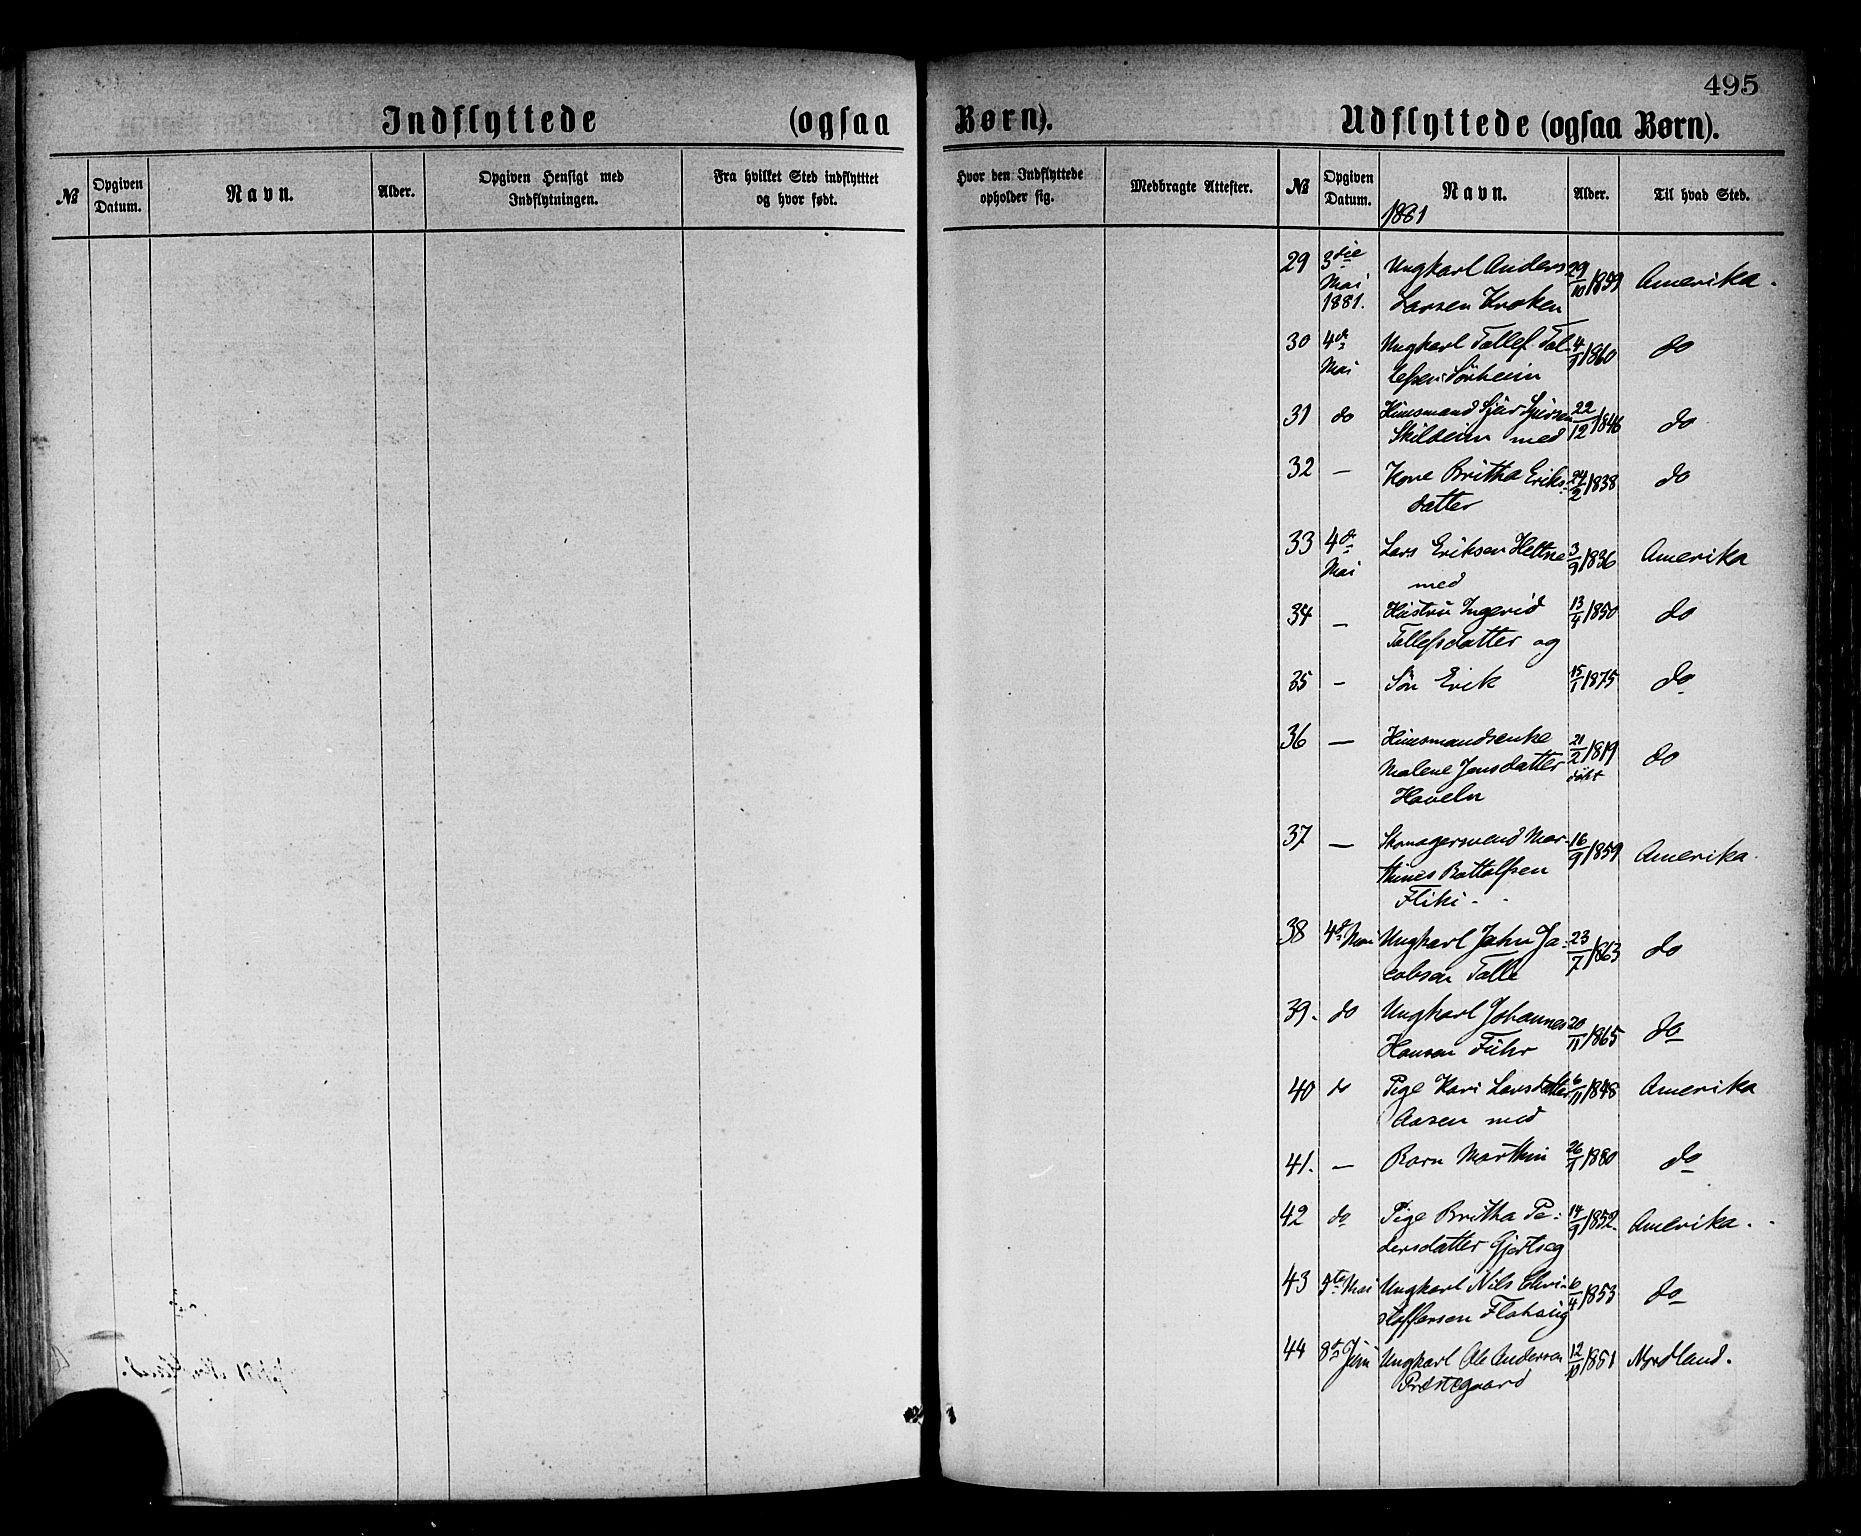 495
Indflyttede (ogsaa Børn).
Udflyttede (ogsaa Børn).
№ Opgiven Datum. Navn. Alder. Opgiven Hensigt med Indflytningen. Fra hvilket Sted indflytttet og hvor født. Hvor den Indflyttede opholder sig. Medbragte Attester. № Opgiven Datum. Navn. Alder. Til hvad Sted.
1881
29 3die Mai 1881. Ungkarl Anders Larsen Kroken 29/10 1859 Amerika.
30 4de Mai Ungkarl Tollef Tollefsen Sørheim 4/9 1860 do
31 do Huusmand Sjur Sjursen Skilheim med 22/12 1846 do
32 — Kone Britha Eriksdatter 24/2 1838 do
33 4de Mai Lars Eriksen Hettne med 3/9 1836 Amerika
34 — Hustru Ingerid Tollefsdatter og 13/4 1850 do
35 — Søn Erik 15/1 1875 do
36 — Huusmandsenke Malene Jensdatter Haveln 21/2 1819 døbt do
37 — Skomagersvend Marthines Bottolfsen Fliki. 16/9 1859 Amerika.
38 4de Mai Ungkarl John Jacobsen Talle 23/7 1863 do
39. do Ungkarl Johannes Hansen Fuhr 20/11 1865 do
40 do Pige Kari Larsdatter Aasen med 6/11 1848 Amerika
41. — Barn Marthin 26/1 1880 do
42 do Pige Britha Pedersdatter Gjertseg 14/9 1852. Amerika.
43 9te Mai Ungkarl Nils Christoffersen Flahaug 6/4 1853 do
44 8de Juni Ungkarl Ole Andersen Præstegaard 12/10 1851 Nordland.